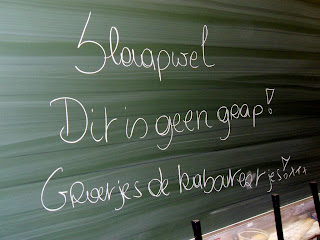 Slaapwel
Dit is geen grap!
Groetjes de kabouterjes!...